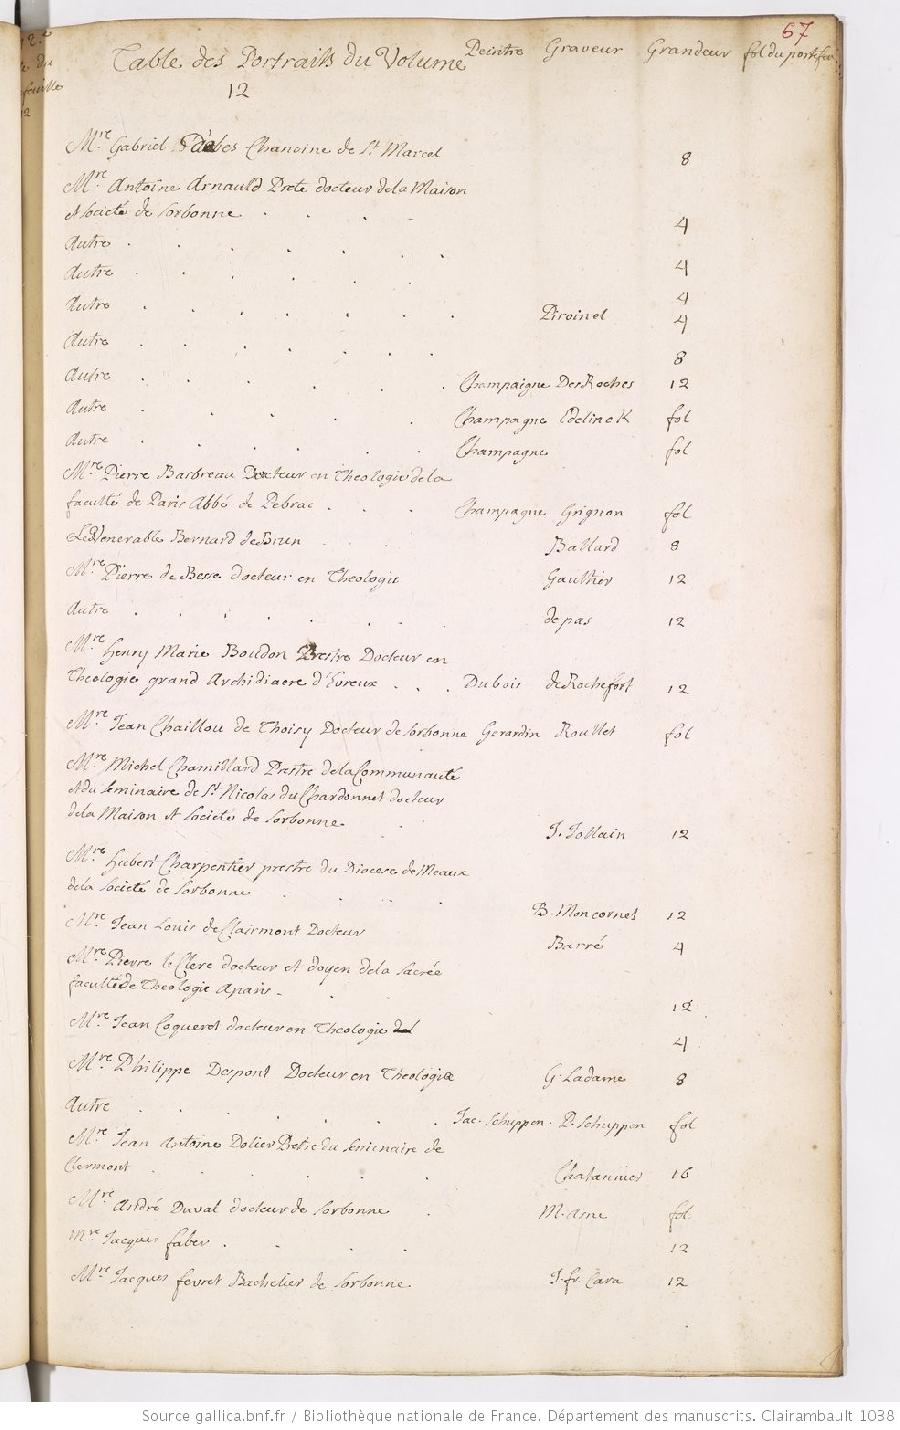 67
Table des Portraits du Volume Peintre Graveur Grandeur fol du portefeu
12
Mre Gabriel Chanoine de St Marcel 8
Mre Antoine Arnauld Prete docteur de la Maison
et societé de sorbonne 4
Autre 4
Autre 4
Autre Piroinel 4
Autre 8
Autre Champaigne DesRoches 12
Autre Champagne Edelinck fol
Autre Champagne fol
Mre Pierre Barbreau Docteur en Theologie de la
faculté de Paris Abbé de Pebrac Champagne Grignon fol
Le Venerable Bernard de Brun Ballard 8
Mre Pierre de Besse docteur en Theologie Gaultier 12
Autre de pas 12
Mre Henry Marie Boudon Prestre Docteur en
Theologie grand Archidiacre d'Evreux Dubois de Rochefort 12
Mre Jean Chaillou de Thoisy Docteur de sorbonne Gerardin Roullet fol
Mre Michel Chamillard Prestre de la Communauté
et du seminaire de St Nicolas du Chardonnet docteur
de la Maison et Societé de Sorbonne J. Jollain 12
Mre Hubert Charpentier prestre du Diocese de Meaux
de la Societé de Sorbonne B. Moncornet 12
Mre Jean Louis de Clairmont Docteur Barré 4
Mre Pierre le Clerc docteur et doyen de la sacrée
faculté de Theologie a paris 12
Mre Jean Coqueret docteur en Theologie 4
Mre Philippe Despont Docteur en Theologie G. Ladame 8
Autre Jac. Schuppen P. Schuppen fol
Mre Jean Antoine Dolier Prestre du seminaire de
Clermont 16
Mre André Duval docteur de Sorbonne M. Asne fol
Mre Jacques faber 12
Mre Jacques fevret Bachelier de Sorbonne J. fr. Cars 12
Source gallica.bnf.fr / Bibliothèque nationale de France. Département des manuscrits. Clairambault 1038